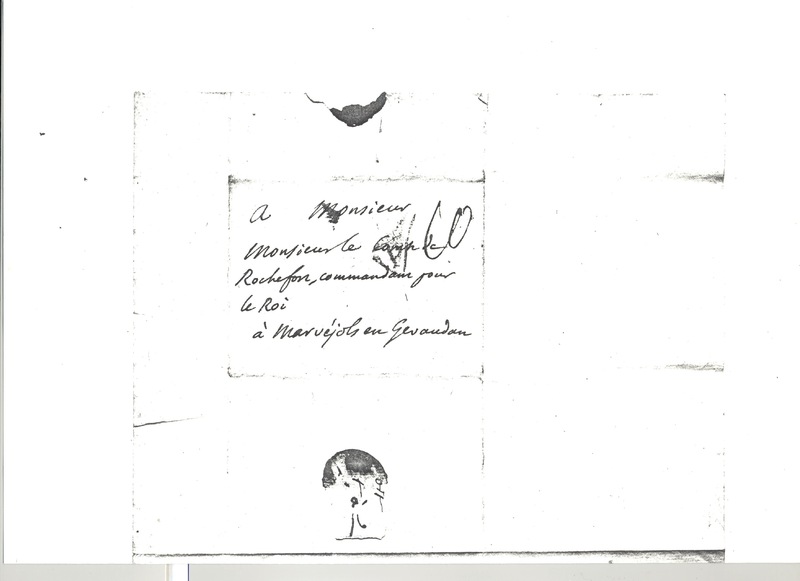 A Monsieur
Monsieur le Comte de
Rochefort, commandant pour
le Roi
à Marvéjols en Gevaudan